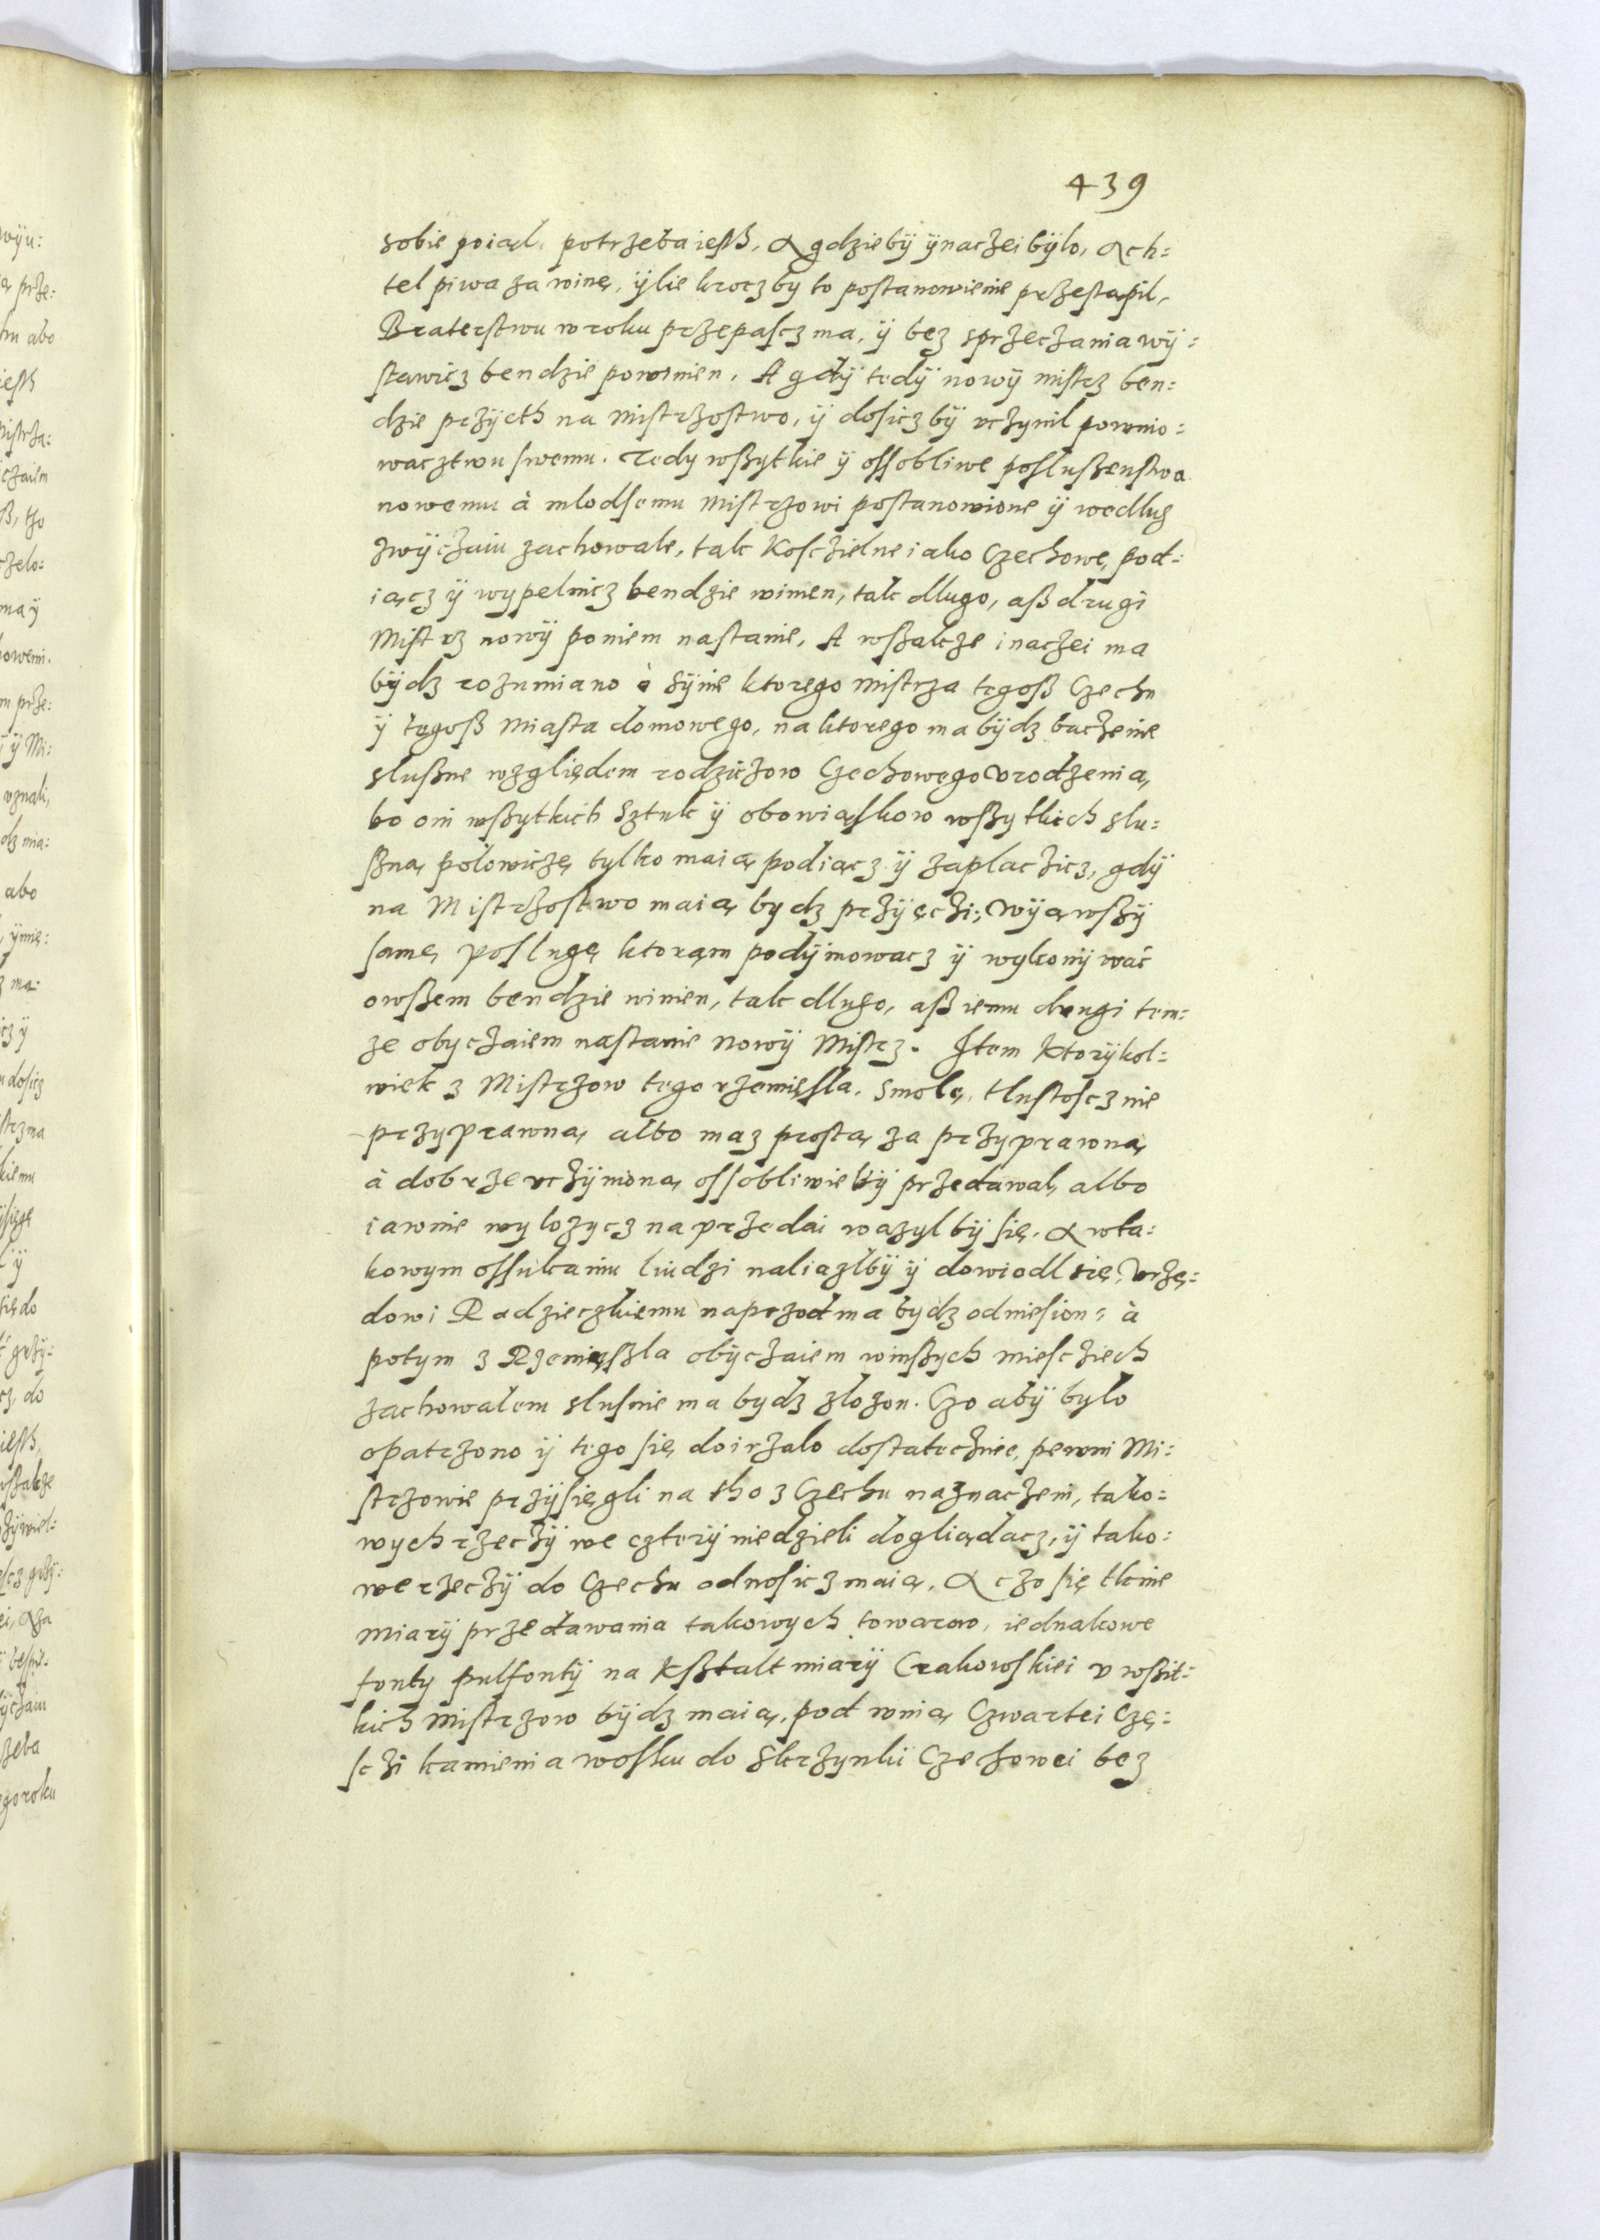 439
sobie poiął, potrzeba iesth, A gdzieby ÿnaczei bÿlo, Ach=
tel piwa za winę, ÿlie kroczby to postanowienie przestąpil,
Braterstwu w roku przepascz ma, ÿ bez sprzeczania wÿ=
stawicz bendzie powinien. A gdÿ tedÿ nowÿ mistrz ben=
dzie przÿeth na Mistrzostwo, ÿ dosicz bÿ uczynil powino=
wacztwu swemu. Tedy wßytkie ÿ ossobliwe posłußenstwa
nowemu à mlodsemu Mistrzowi postanowione ÿ wedlug
zwÿczaiu zachowale, tak Kosczielne iako Czechowe, pod=
iącz ÿ wypelnicz bendzie winien, tak dlugo, aß drugi
Mistrz nowÿ poniem nastanie, A wßakze inaczei ma
bÿdz rozumiano o sÿnie ktorego Mistrza tegoß Czechu
ÿ tegoß Miasta domowego, na ktorego ma bÿdz baczenie
slußne względem rodziczow Czechowego urodzenia,
bo oni wßytkich sztuk ÿ obowiąskow wßytkich slu=
ßną polowiczę tylko maią podiącz ÿ zaplaczicz, gdÿ
na Mistrzostwo maią bydz przÿęczi; Wÿąwßÿ
samę poslugę ktorąm podÿmowacz ÿ wykonÿwać
owßem bendzie winien, tak dlugo, aß iemu drugi tem=
ze obyczaiem nastanie nowÿ Mistrz. Item Ktorÿkol=
wiek z Mistrzow tego rzemięsla, smolę, tlustoscz nie
przyprawną albo maz prostą za przyprawną
à dobrze uczÿnioną ossobliwie bÿ przedawal, albo
iawnie wylozycz na przedai wazyl bÿ się. A w ta=
kowym ossukaniu liudzi naliazlbÿ ÿ dowiodl się, Urzę=
dowi Radzieczkiemu naprzod ma bydz odniesion, à
potym z Rzemięszla obÿczaiem w inßych miesczech
zachowalem slusnie ma bydz zlozon. Czo abÿ bylo
opatrzono ÿ tego się doirzalo dostatecznie, pewni Mi=
strzowie przÿsięgli na tho z Czechu naznaczeni, tako=
wych rzeczÿ we czterÿ niedzieli dogliądacz, ÿ tako=
we rzeczÿ do Czechu odnosicz maią, A czo się tknie
miarÿ przedawania takowych towarow, iednakowe
fonty pulfontÿ na kßtalt miarÿ Crakowskiei u wßit=
kich Mistrzow bÿdz maią, pod winą Czwartei Czę=
sczi kamienia wosku do skrzynki Czechowei bez